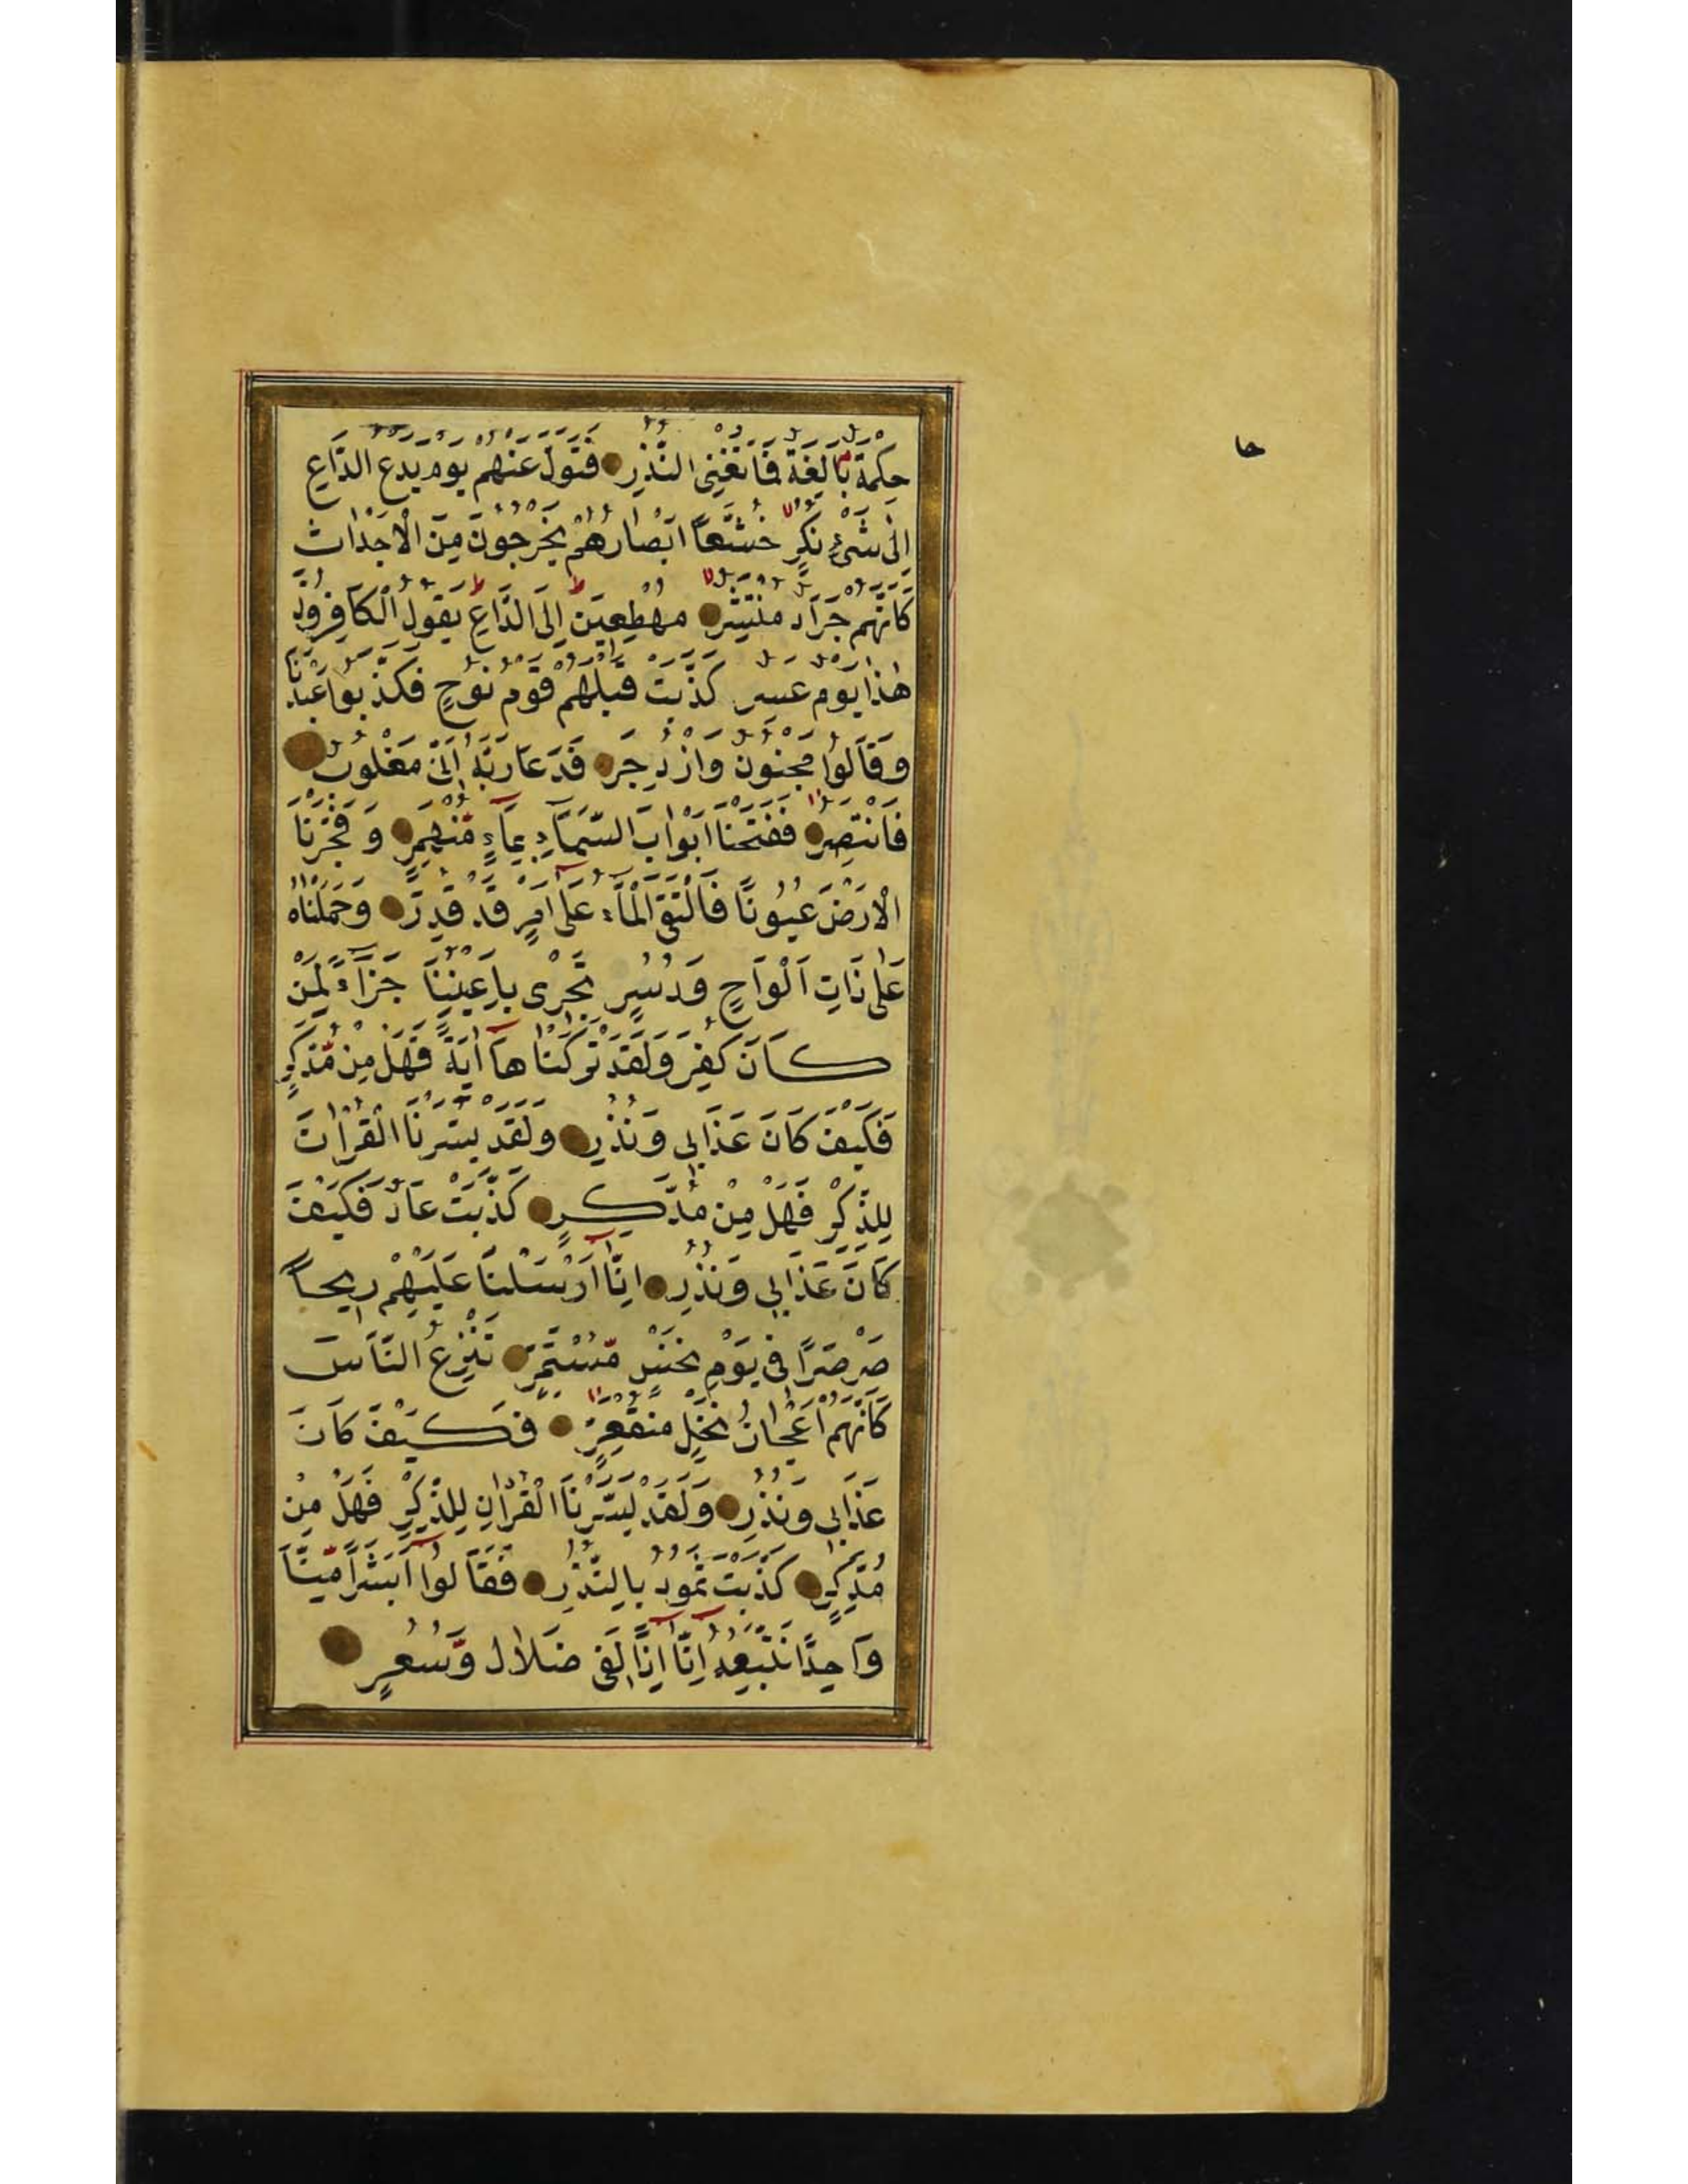 حا
حِكْمَةٌ بَالِغَةٌ فَمَا تُغْنِى النُّذُرِ فَتَوَلَّ عَنْهُمْ يَوْمَ يَدْعُ الدَّاعِ
اِلٰى شَىْءٍ نُكُرٍ خُشَّعاً اَبْصَارُهُمْ يَخْرُجُونَ مِنَ الْاَجْدَاثِ
كَاَنَّهُمْ جَرَادٌ مُنْتَشِرٌ مُهْطِعِينَ اِلَى الدَّاعِ يَقُولُ الْكَافِرُونَ
هٰذَا يَوْمٌ عَسِرٌ كَذَّبَتْ قَبْلَهُمْ قَوْمُ نُوحٍ فَكَذَّبُوا عَبْدَنَا
وَقَالُوا مَجْنُونٌ وَازْدُجِرَ فَدَعَا رَبَّهُ اَنِّى مَغْلُوبٌ
فَانْتَصِرْ فَفَتَحْنَا اَبْوَابَ السَّمَآءِ بِمَآءٍ مُّنْهَمِرٍ وَفَجَّرْنَا
الْاَرْضَ عُيُونًا فَالْتَقَى الْمَآءُ عَلٰى اَمْرٍ قَدْ قُدِرَ وَحَمَلْنَاهُ
عَلٰى ذَاتِ اَلْوَاحٍ وَدُسُرٍ تَجْرٖى بِاَعْيُنِنَا جَزَآءً لِمَنْ
كَانَ كُفِرَ وَلَقَدْ تَرَكْنَاهَآ اٰيَةً فَهَلْ مِنْ مُّدَّكِرٍ
فَكَيْفَ كَانَ عَذَابٖى وَنُذُرِ وَلَقَدْ يَسَّرْنَا الْقُرْاٰنَ
لِلذِّكْرِ فَهَلْ مِنْ مُدَّكِرٍ كَذَّبَتْ عَادٌ فَكَيْفَ
كَانَ عَذَابٖى وَنُذُرِ اِنَّآ اَرْسَلْنَا عَلَيْهِمْ رٖيحاً
صَرْصَرًا فٖى يَوْمِ نَحْسٍ مُّسْتَمِرٍّ تَنْزِعُ النَّاسَ
كَاَنَّهُمْ اَعْجَازُ نَخْلٍ مُنْقَعِرٍ فَكَيْفَ كَانَ
عَذَابٖى وَنُذُرِ وَلَقَدْ يَسَّرْنَا الْقُرْاٰنَ لِلذِّكْرِ فَهَلْ مِنْ
مُدَّكِرٍ كَذَّبَتْ ثَمُودُ بِالنُّذُرِ فَقَالُوٓا اَبَشَرًا مِّنَّا
وَاحِدًا نَتَّبِعُهُ اِنَّآ اِذًا لَفٖى ضَلَالٍ وَّسُعُرٍ